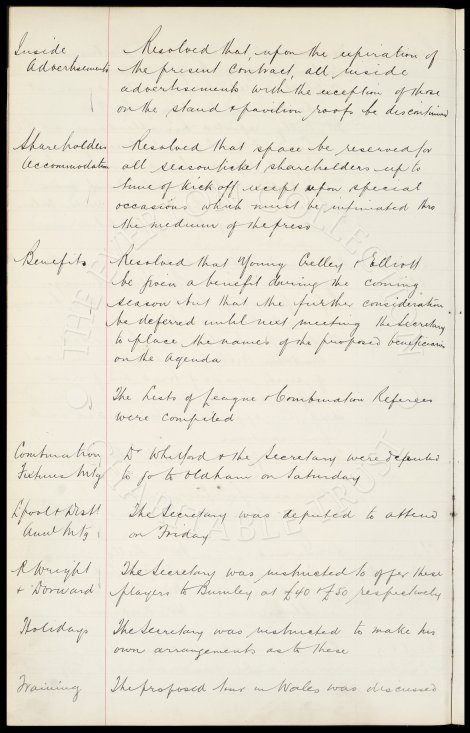 Inside Resolved that upon the expiration of
Advertisements the present contract, all inside
advertisements with the exception of those
on the stand & pavilion roofs be discontinued
Shareholders Resolved that space be reserved for
Accommodation all season ticket shareholders up to
time of kick off except upon special
occasions which must be intimated thro
the medium of the press
Benefits Resolved that Young Crelley & Elliott
be given a benefit during the coming
season but that the further consideration
be deferred until next meeting the Secretary
to place the names of the proposed beneficiaries
on the Agenda
The Lists of League & Combination Referees
were compiled
Combination Dr Whitford & the Secretary were deputed
Fixtures Mtg to go to Oldham on Saturday
Lpool & Distt The Secretary was deputed to attend
Annl Mtg on Friday
R Wright The Secretary was instructed to offer these
& Dorward players to Burnley at £40 & £50 respectively
Holidays The Secretary was instructed to make his
own arrangements as to these
Training The proposed tour in Wales was discussed
THE EVERTON COLLECTION
CHARITABLE TRUST